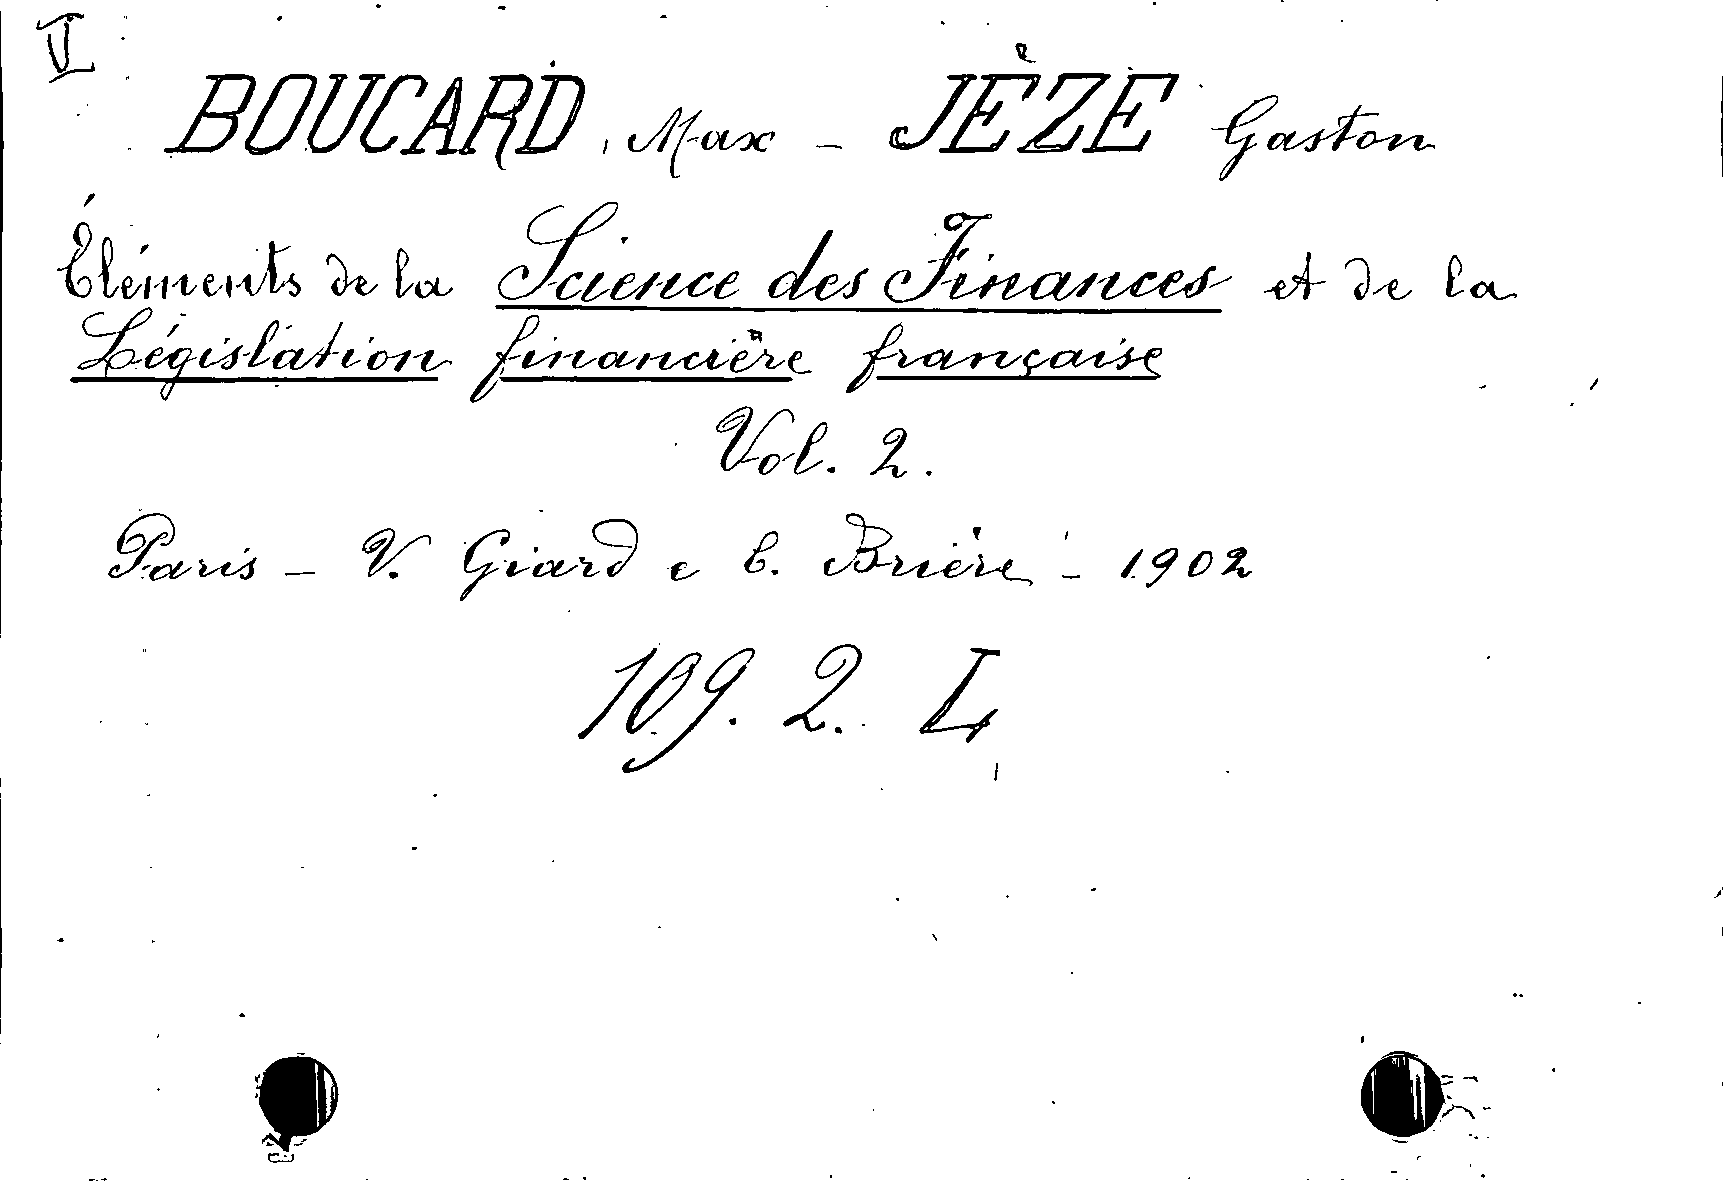 V
BOUCARD, Max - JÈZE Gaston
Éléments de la Science des Finances et de la
Législation financière française
Vol. 2.
Paris - V. Giard e E. Brière - 1902
109. 2. L